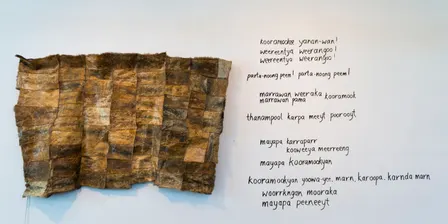 kooramookee yanan-wan!
weereentya weerangoo!
weereentya weerangoo!
parta-noong peem! parta-noong peem!
marrawan weeraka kooramook
marrawan pama
thanampool karpa meeyt pooroyt
mayapa tarraparr
kooweeya meerreeng
mayapa kooramookyan
kooramookyan yoowa-yee, marn, karoopa, karnda marn
woorrkngan mooraka
mayapa peeneeyt